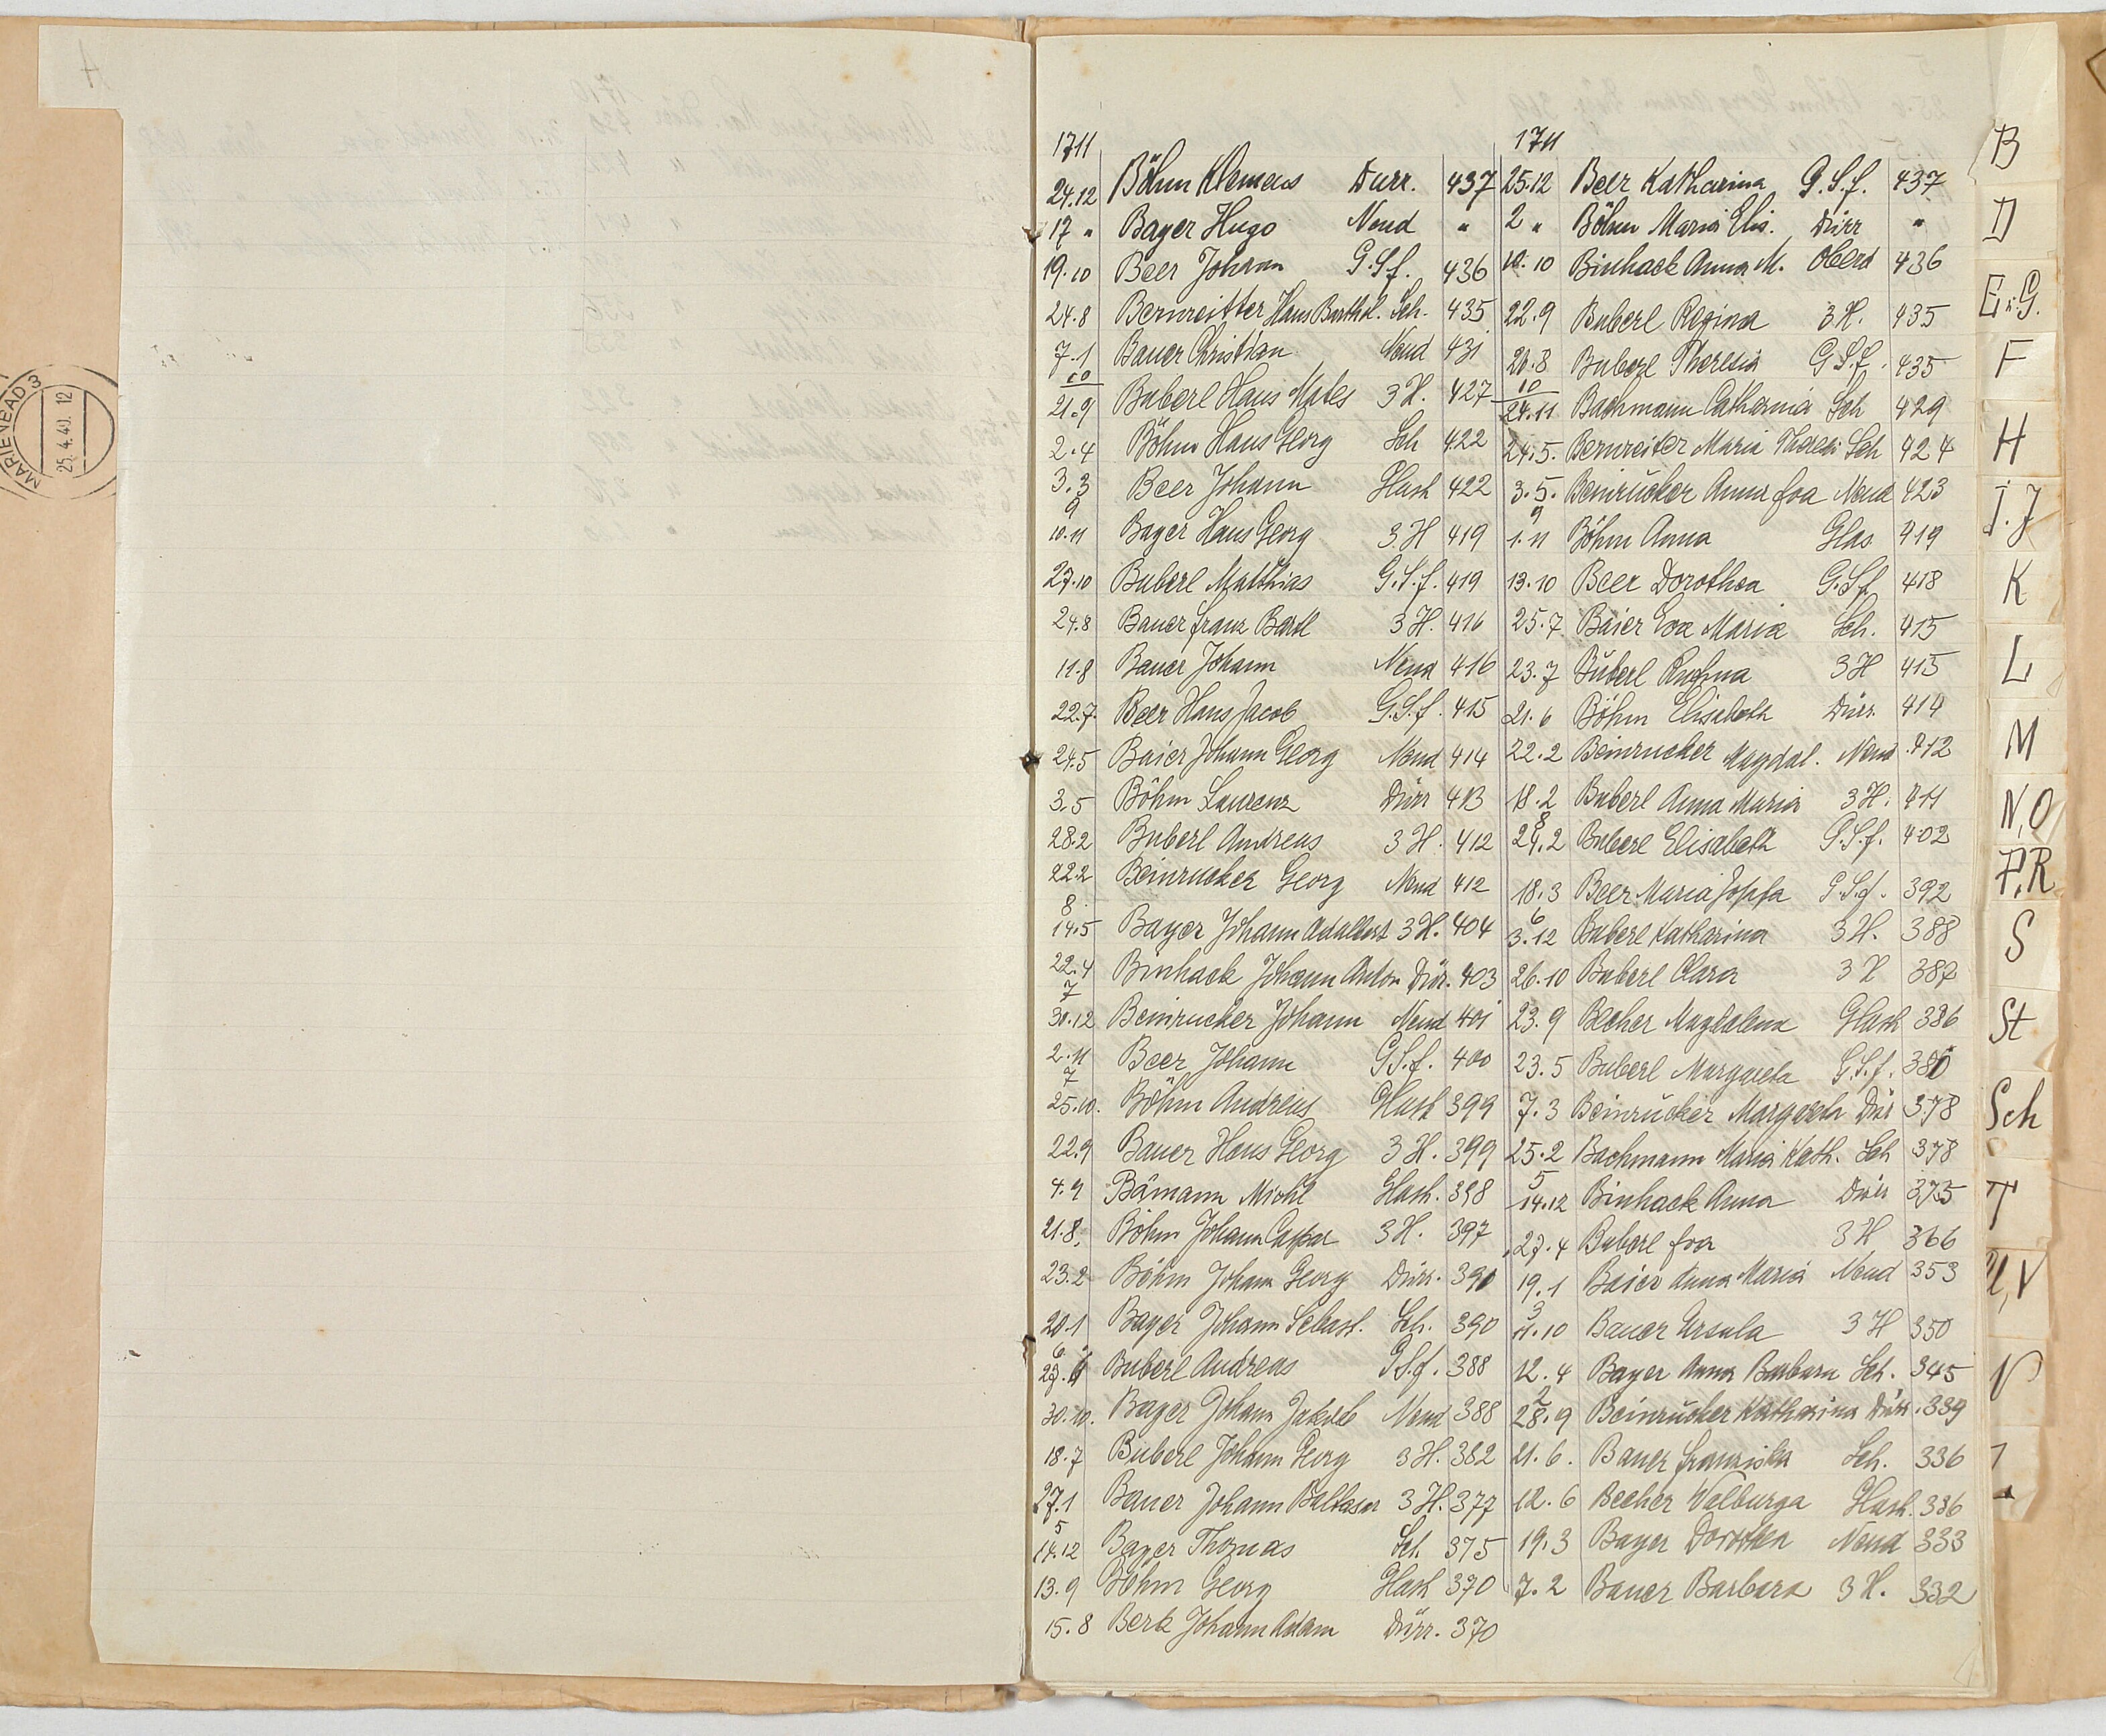 MARIENBAD 3
25.4.40. 12
1711
24.12 Böhm Klemens Dürr. 437
17 " Bayer Hugo Neud "
19.10 Beer Johann G.S.f. 436
24.8 Bernreitter Hans Barthol. Sch. 435
7.1 Bauer Christian Neud 431
10
21.9 Buberl Hans Mates 3 H. 427
2.4 Böhm Hans Georg Sch 422
3.3 Beer Johann Glash 422
9
10.11 Bayer Hans Georg 3.H 419
27.10 Buberl Matthias G.S.f. 419
24.8 Bauer Franz Bartl 3 H. 416
11.8 Bauer Johann Neud 416
22.7. Beer Hans Jacob G.S.f. 415
24.5 Baier Johann Georg Neud 414
3.5 Böhm Laurenz Dürr 413
28.2 Buberl Andreas 3 H. 412
22.2 Beinrucker Georg Neud 412
8.
14.5 Bayer Johann Adalbert 3 H. 404
22.4 Binhack Johann Anton Dür. 403
7
30.12 Beinrucker Johann Neud 401
2.11 Beer Johann G.S.f. 400
7
25.10. Böhm Andreas Glash 399
22.9 Bauer Hans Georg 3 H. 399
4.9 Bämann Michl Glash. 398
21.8. Böhm Johann Caspar 3 H. 397
23.2 Böhm Johann Georg Dürr. 390
20.1 Bayer Johann Sebast. Sch. 390
6.
Buberl Andreas G.S.f. 388
30.10. Bayer Johann Jakob Neud 388
18.7 Buberl Johann Georg 3 H. 382
27.1 Bauer Johann Baltasar 3 H. 377
5
14.12 Bayer Thomas Sch. 375
13.9 Böhm Georg Glash 370
15.8 Berk Johann Adam Dürr. 370
1711
25.12 Beer Katharina G.S.f. 437
2 " Böhm Maria Elis. Dürr "
10.10 Binhack Anna M. Oberd 436
22.9 Buberl Regina 3 H. 435
20.8 Buberl Theresia G.S.f. 435
10
24.11 Bachmann Catharina Sch 429
24.5. Bernreiter Maria Theresi Sch 424
3.5. Beinrucker Anna Eva Neud 423
9
1.11 Böhm Anna Glas 419
13.10 Beer Dorothea G.S.f 418
25.7 Baier Eva Maria Sch. 415
23.7 Buberl Regina 3 H 415
21.6 Böhm Elisabeth Dürr. 414
22.2 Beinrucker Magdal. Neud. 412
18.2 Buberl Anna Maria 3 H. 411
8
24.2 Buberl Elisabeth G.S.f. 402
18.3 Beer Maria G.S.f. 392
6
3.12 Buberl Katharina 3 H. 388
26.10 Buberl Clara 3 H 387
23.9 Becher Magdalena Glash 386
23.5 Buberl Margareta G.S.f. 380
7.3 Beinrucker Margareth Dür 378
25.2 Bachmann Maria Kath. Sch 378
5
14.12 Binhack Anna Dürr 375
27.4 Buberl Eva 3 H 366
19.1 Baier Anna Maria Neud 353
3
11.10 Bauer Ursula 3 H 350
12.4 Bayer Anna Barbara Sch. 345
2
28.9 Beinrucker Katharina Dürr. 339
21.6. Bauer Franziska Sch. 336
12.6 Becher Walburga Glash. 336
19.3 Bayer Dorothea Neud 333
7.2 Bauer Barbara 3 H. 332
B
D
E. G.
F
H
I. J
K
L
M
N, O
P, R
S
St
Sch
T
U, V